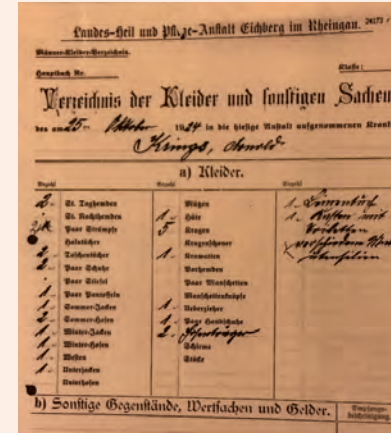 Landes-Heil und Pflege-Anstalt Eichberg im Rheingau.
Männer-Kleider-Verzeichnis.
Hauptbuch Nr.
Klasse:
Verzeichnis der Kleider und sonstigen Sachen
des am 25. Oktober 1924 in die hiesige Anstalt aufgenommenen Krank
Krings, Arnold
a) Kleider.
Anzahl Anzahl Anzahl
2. St. Taghemden
St. Nachthemden
Paar Strümpfe
Halstücher
2. Taschentücher
2. Paar Schuhe
Paar Stiefel
1. Paar Pantoffeln
1. Sommer-Jacken
2. Sommer-Hosen
1. Winter-Jacken
1. Winter-Hosen
1. Westen
1. Unterjacken
Unterhosen
Mützen
1. Hüte
5 Kragen
Kragenschoner
1. Krawatten
Vorhemden
Paar Manschetten
Manschettenknöpfe
1. Ueberzieher
1. Paar Handschuhe
2. Hosenträger
Schirme
Stöcke
1.
1. Kasten mit
b) Sonstige Gegenstände, Wertsachen und Gelder.
Empfangs-
bescheinigung.